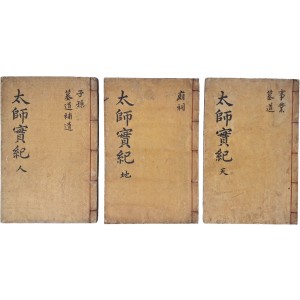 事業
墓道
太師實紀 天
廟祠
太師實紀 地
子孫
墓道補遺
太師實紀 人